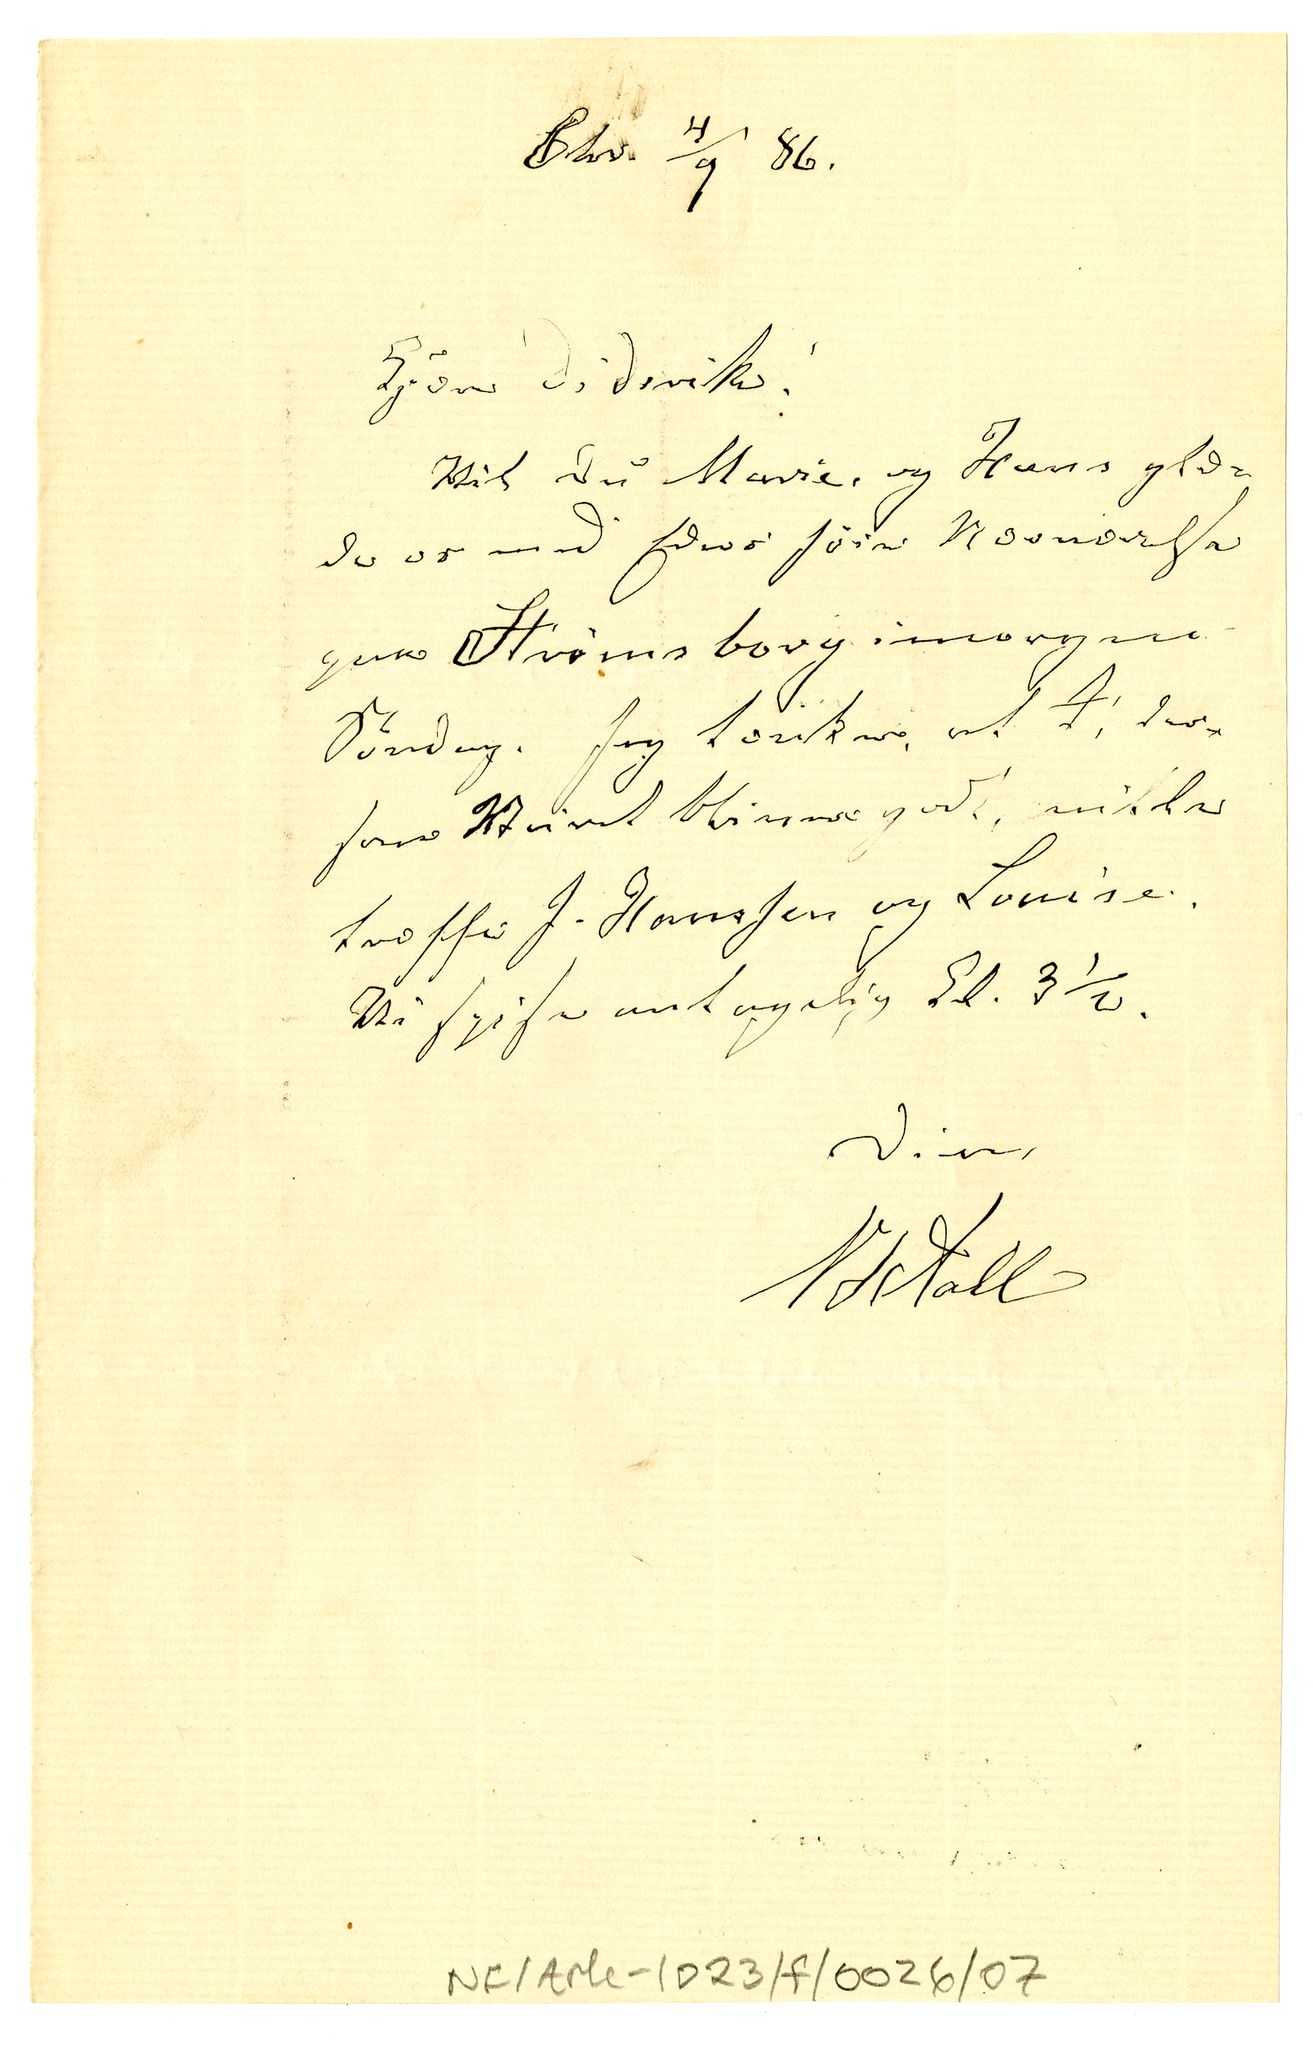 Chr. 4/9 86.
Kjære Didrike!
Vil Du Marie, og Hans glæ=
de os med Eders høie Nærværelse
paa Strömsborg imorgen
Söndag. Jeg tænker, at I, der=
som Veiret bliver godt, ville
træffe J. Hanssen og Louise.
Vi spise antagelig Kl. 3 1/2.
Din
NF/Ark-1023/f/0026/07